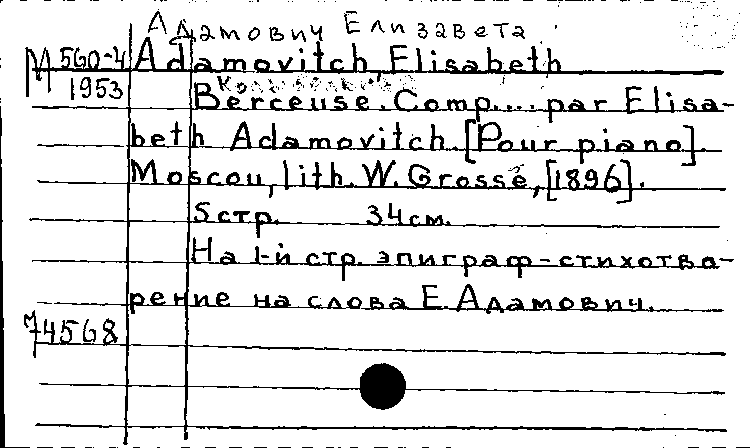 Адамович Елизавета
М 560-4 Adamovitch, Elisabeth
1953
Колыбельная
Berceuse. Comp.... par Elisa-
beth Adamovitch. [Pour piano].
Moscou, lith. W. Grosse, [1896].
5 стр. 34 см.
На 1-й стр. эпиграф-стихотво-
рение на слова Е. Адамович.
74568